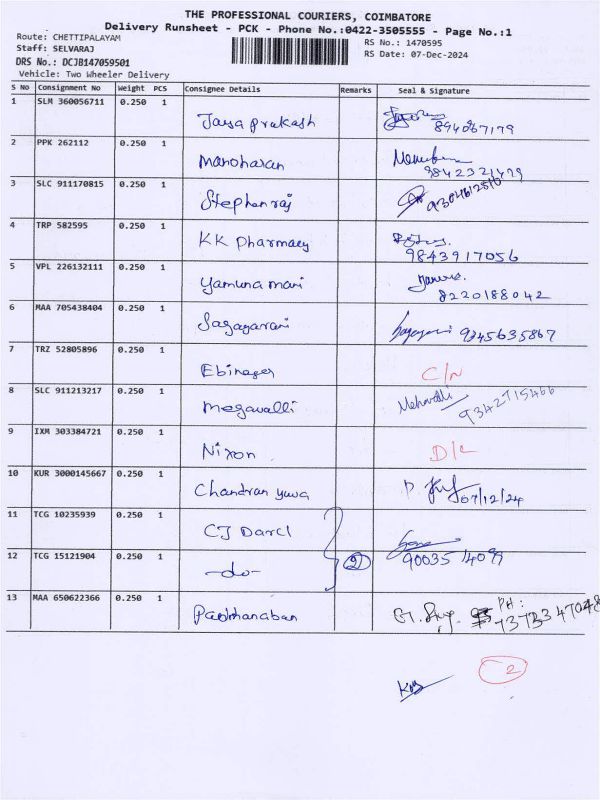 THE PROFESSIONAL COURIERS, COIMBATORE
Delivery Runsheet - PCK - Phone No.:0422-3505555 - Page No.:1
Route: CHETTIPALAYAM
Staff: SELVARAJ
RS No.: 1470595
DRS No.: DCJB147059501
RS Date: 07-Dec-2024
Vehicle: Two Wheeler Delivery
S No Consignment No Weight PCS Consignee Details Remarks Seal & Signature
1 SLM 360056711 0.250 1 Jaya prakash
2 PPK 262112 0.250 1 Manoharan 9842321479
3 SLC 911170815 0.250 1 Stephen raj
4 TRP 582595 0.250 1 KK Pharmacy 9843917056
5 VPL 226132111 0.250 1 Yamuna mani 8220188042
6 MAA 705438404 0.250 1 9345635867
7 TRZ 52805896 0.250 1 Ebinager C/N
8 SLC 911213217 0.250 1 megavalli 9342715466
9 IXM 303384721 0.250 1 Nixon D/L
10 KUR 3000145667 0.250 1 Chandran yuva 07/12/24
11 TCG 10235939 0.250 1 CJ Darcl
12 TCG 15121904 0.250 1 -do- 2 90035 14099
13 MAA 650622366 0.250 1 Padmanaban PH:
2